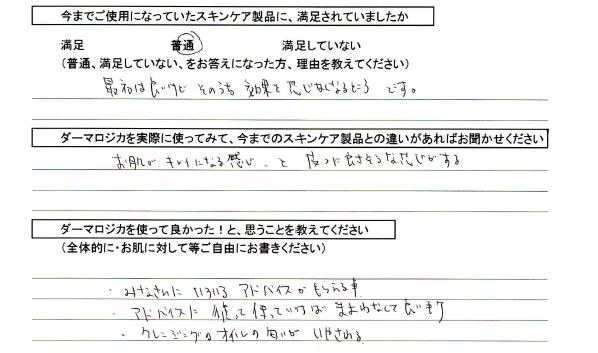 今までご使用になっていたスキンケア製品に、満足されていましたか
満足 普通 満足していない
(普通、満足していない、をお答えになった方、理由を教えてください)
最初は良いけど そのうち 効果を感じなくなるところ です。
ダーマロジカを実際に使ってみて、今までのスキンケア製品との違いがあればお聞かせください
お肌が キレイになる感じ と 良さそうな感じがする
ダーマロジカを使って良かった!と、思うことを教えてください
(全体的に・お肌に対して等ご自由にお書きください)
・みなさんに いろいろ アドバイスが もらえる事
・アドバイスに 従って 使っていけば まよわなくて 良い
・クレンジングの オイルの 匂いが いやされる